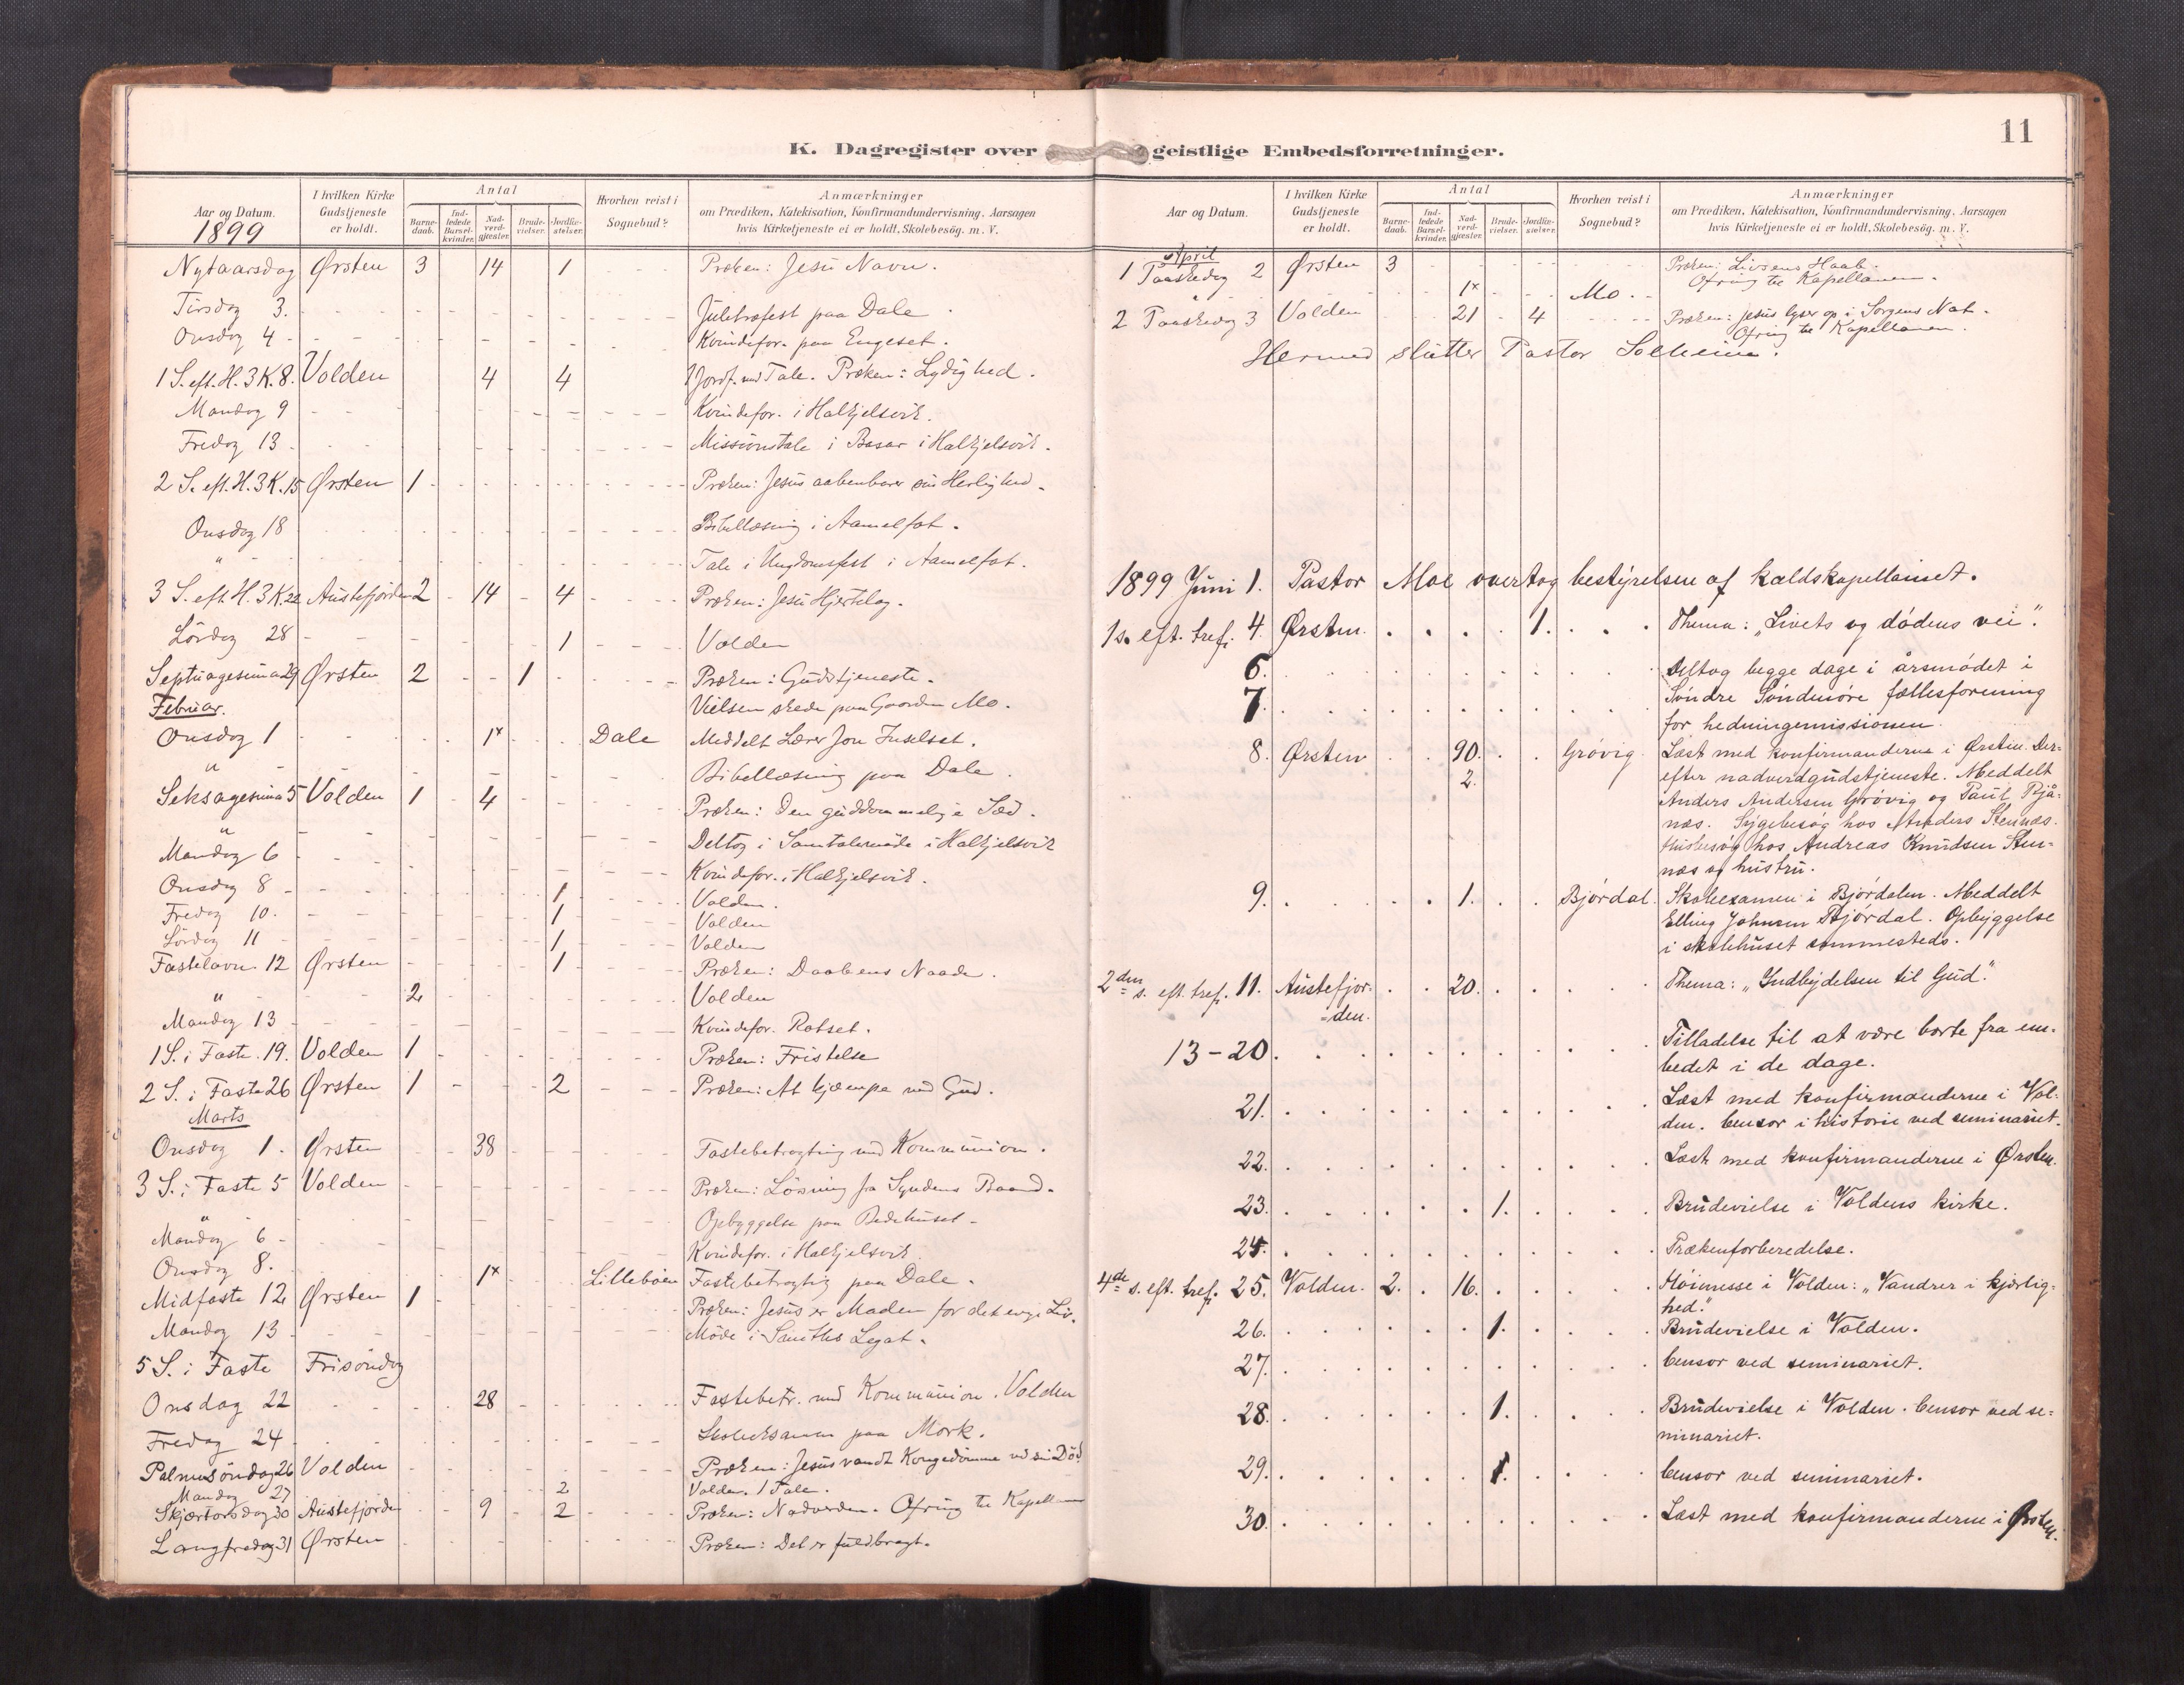 K. Dagregister over geistlige Embedsforretninger.
11
Aar og Datum. 1899
I hvilken Kirke Gudstjeneste er holdt.
Antal
Barne-daab. Ind-ledede Barsel-kvinder. Nad-verd-gjæster. Brude-vielser. Jordfæ-stelser.
Hvorhen reist i Sognebud?
Anmærkninger
om Prædiken, Katekisation, Konfirmandundervisning. Aarsagen
hvis Kirketjeneste ei er holdt, Skolebesög. m. V.
Nytaarsdag Ørsten 3 14 1 Præken: Jesu Navn.
Tirsdag 3. Juletræfest paa Dale
Onsdag 4 Kvindefor. paa Engeset.
1 S. eft. H. 3 K. 8. Volden 4 4 1 Jordf. med Tale. Præken: Lydighed.
Mandag 9 Kvindefor. i Halkjelsvik.
Fredag 13 Missionstale i Basar i Halkjelsvik.
2 S. eft. H. 3 K. 15 Ørsten 1 Præken: Jesus aabenbarer sin Herlighed.
Onsdag 18 Bibellæsning i Aamelfot.
" Tale i Ungdomsfest i Aamelfot.
3 S. eft. H. 3 K. 22 Austefjorden 2 14 4 Præken: Jesu Hjertelag.
Lördag 28 1 Volden
Septuagesima 29 Ørsten 2 1 Præken: Gudstjeneste.
Februar. Vielsen skede paa Gaarden Mo.
Onsdag 1 1x Dale Meddelt Lærer Jon
" Bibellæsning paa Dale.
Seksagesima 5 Volden 1 4 Præken: Den guddommelige Sæd.
" Deltog i Samtalemøde i Halkjelsvik
Mandag 6 Kvindefor. i Halkjelsvik.
Onsdag 8 1 Volden.
Fredag 10. 1 Volden
Lördag 11 1 Volden
Fastelavn 12 Ørsten 1 Præken: Daabens Naade.
" 2 Volden
Mandag 13 Kvindefor. Rotset.
1 S. i Faste 19. Volden 1 Præken: Fristelse
2 S. i Faste 26 Ørsten 1 2 Præken: At kjæmpe med Gud.
Marts
Onsdag 1. Ørsten 38 Fastebetragtning med Kommunion.
3 S. i Faste 5 Volden Præken: Lösning fra Syndens Baand.
" Opbyggelse paa Bedehuset.
Mandag 6 Kvindefor. i Halkjelsvik
Onsdag 8. 1x Lillebøen Fastebetragtng paa Dale.
Midfaste 12 Ørsten 1 Præken: Jesus er Maden for det evige Liv.
Mandag 13 Möde i Smiths Legat.
5 S. i Faste Frisöndag
Onsdag 22 28 Fastebetr. med Kommunion. Volden
Fredag 24 Skoleksamen paa Mork.
Palmesöndag 26 Volden Præken: Jesus vandt Kongedömme ved sin Död
Mandag 27 2 Volden. 1 Tale.
Skjærtorsdag 30 Austefjorden 9 2 Præken: Nadverden. Ofring til Kapellanen
Langfredag 31 Ørsten Præken: Det er fuldbragt.
Aar og Datum.
I hvilken Kirke Gudstjeneste er holdt.
Antal
Barne-daab. Ind-ledede Barsel-kvinder. Nad-verd-gjæster. Brude-vielser. Jordfæ-stelser.
Hvorhen reist i Sognebud?
Anmærkninger
om Prædiken, Katekisation, Konfirmandundervisning. Aarsagen
hvis Kirketjeneste ei er holdt, Skolebesög. m. V.
April
1 Paaskedag 2 Ørsten 3 Præken: Livsens Haab.
Ofring til Kapellanen.
" 1x Mo.
2 Paaskedag 3 Volden 21 4 Præken: Jesus lyser op i Sorgens Nat.
Ofring til Kapellanen.
Hermed slutter Pastor Solheim.
1899 Juni 1. Pastor Moe overtog bestyrelsen af kaldskapellaniet.
1 s. eft. tref. 4. Ørsten. 1. Thema: „Livets og dódens vei“.
6. Deltog begge dage i årsmódet i
7. Sóndre Sóndmóre fællesforening
for hedningemissionen.
8. Ørsten 90. Gróvig Læst med konfirmanderne i Ørsten. Der-
2. efter nadverdgudstjeneste. Meddelt
Anders Andersen Gróvig og Paul Rjå-
næs. Sygebesóg hos Anders Stennæs.
Husbesóg hos Andreas Knudsen Sten-
næs og hustru.
9. 1. Bjórdal. Skoleexamen i Bjórdalen. Meddelt
Elling Johnsen Bjórdal. Opbyggelse
i skolehuset sammesteds.
2den s. eft. tref. 11. Austefjor- 20. Thema: „Indbydelsen til Gud“.
=den.
13-20. Tilladelse til at være borte fra em-
bedet i de dage.
21. Læst med konfirmanderne i Vol-
den. Censor i historie ved seminariet.
22. Læst med konfirmanderne i Ørsten.
23. 1. Brudevielse i Voldens kirke.
24. Prækenforberedelse.
4de s. eft. tref. 25. Volden. 2. 16. Hóimesse i Volden: „Vandrer i kjærlig-
hed“.
26. 1. Brudevielse i Volden.
27. Censor ved seminariet.
28. 1. Brudevielse i Volden. Censor ved se-
minariet.
29. 1. Censor ved seminariet.
30. Læst med konfirmanderne i Ørsten.